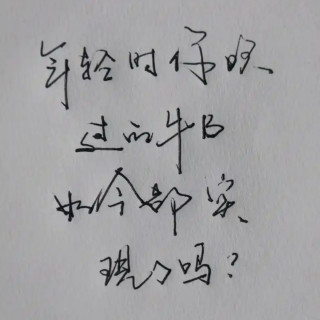 年轻时你吹
过的牛B
如今都实
现了吗?